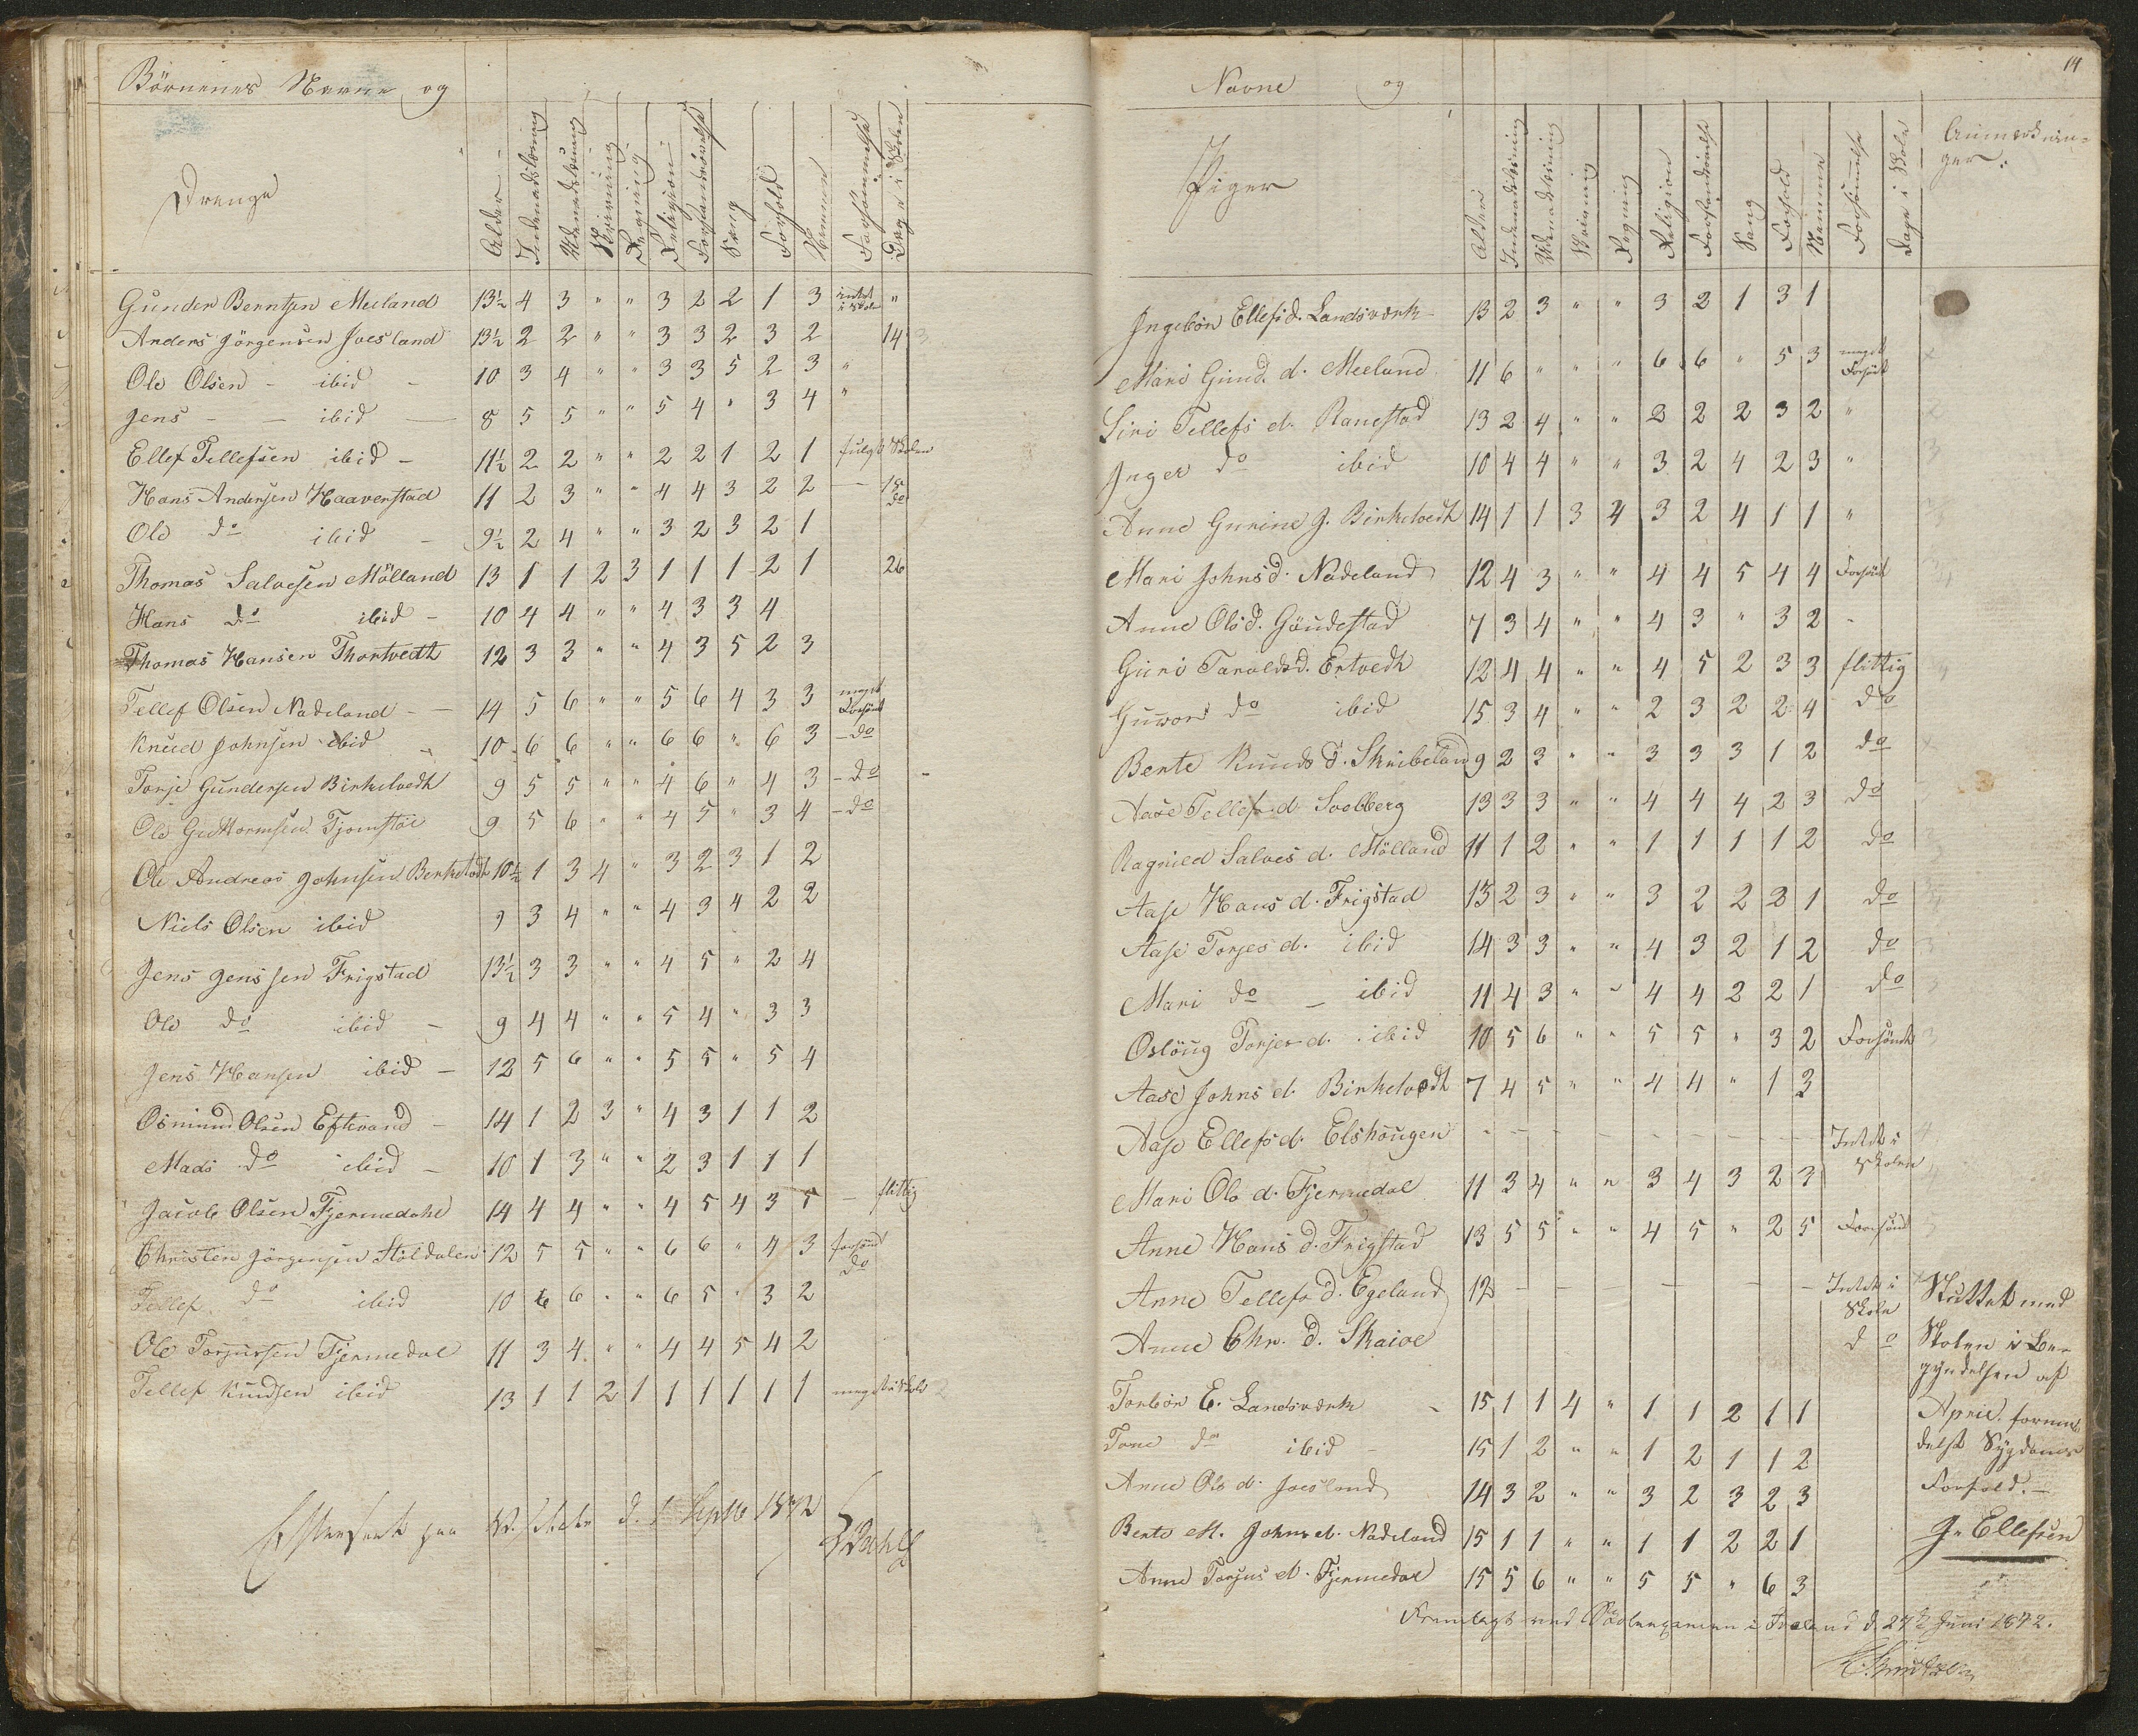 Børnenes Navne og
Drenge
Alder
Indenadslæsning
Udenadslæsning
Skrivning
Regning
Religion
Forstandsøvelse
Sang
Forhold
Nemme
Forsømmelse
Dage i Skolen
Gunder Berntsen Meeland 13½ 4 3 " " 3 2 2 1 3 intet i Skole "
Anders Jörgensen Joesland 13½ 2 2 " " 3 3 2 3 2 14
Ole Olsen - ibid - 10 3 4 " " 3 3 5 2 3 "
Jens - - ibid - 8 5 5 " " 5 4 " 3 4 "
Ellef Tellefsen ibid - 11½ 2 2 " " 2 2 1 2 1 fulgt Skolen
Hans Andersen Haaverstad 11 2 3 " " 4 4 3 2 2 - 15
Ole do ibid - 9½ 2 4 " " 3 2 3 2 1 do
Thomas Salvesen Mölland 13 1 1 2 3 1 1 1 2 1 26
Hans do ibid - 10 4 4 " " 4 3 3 4
Thomas Hansen Thortvedt 12 3 3 " " 4 3 5 2 3
Tellef Olsen Nadeland - 14 5 6 " " 5 6 4 3 3 meget Forsömt
Knud Johnsen ibid - 10 6 6 " " 6 6 " 6 3 - do
Torje Gundersen Birkelvedt 9 5 5 " " 4 6 " 4 3 - do
Ole Guttormsen Tjomstöe 9 5 6 " " 4 5 " 3 4 - do
Ole Andreas Johnsen Berketvedt 10½ 1 3 4 " 3 2 3 1 2
Niels Olsen ibid 9 3 4 " " 4 3 4 2 2
Jens Jenssen Frigstad 13½ 3 3 " " 4 5 " 2 4
Ole do ibid - 9 4 4 " " 5 4 " 3 3
Jens Hansen ibid - 12 5 6 " " 5 5 " 5 4
Osmund Olsen Eftevand - 14 1 2 3 " 4 3 1 1 2
Mads do ibid - 10 1 3 " " 2 3 1 1 1
Jacob Olsen Fjermedahl 14 4 4 " " 4 5 4 3 5 - flittig
Christen Jörgensen Stöldalen 12 5 5 " " 6 6 " 4 3 forsömt
Tellef do ibid 10 6 6 " " 6 5 " 3 2 do
Ole Torjussen Fjermedal 11 3 4 " " 4 4 5 4 2
Tellef Knudsen ibid 13 1 1 2 1 1 1 1 1 1 meget i Skole
Efterseet paa d. 1 Septb 1842
Navne og 14
Piger
Alder
Indenadslæsning
Udenadslæsning
Skrivning
Regning
Religion
Forstandsøvelse
Sang
Forhold
Nemme
Forsömmelse
Dage i Skole
Anmærkninger.
Ingebör Ellefsd. Landsværk 13 2 3 " " 3 2 1 3 1
Mari Gund. d. Meeland 11 6 " " " 6 6 " 5 3 meget Forsömt
Siri Tellefs d. Ranestad 13 2 4 " " 2 2 2 3 2 "
Inger do ibid 10 4 4 " " 3 2 4 2 3 "
Anne Gurine J. Birkelvedt 14 1 1 3 4 3 2 4 1 1 "
Mari Johnsd. Nadeland 12 4 3 " " 4 4 5 4 4 Forsömt
Anne Olsd. Göudestad 7 3 4 " " 4 3 " 3 2 -
Guri Taraldsd. Ertvedt 12 4 4 " " 4 5 2 3 3 flittig
Guwor do ibid 15 3 4 " " 2 3 2 2 4 do
Bente Knuds d. Skribeland 9 2 3 " " 3 3 3 1 2 do
Aase Tellefs d. Soelberg 13 3 3 " " 4 4 4 2 3 do
Ragnild Salves d. Mölland 11 1 2 " " 1 1 1 1 2 do
Aase Hans d. Frigstad 13 2 3 " " 3 2 2 2 1 do
Aase Torjes d. ibid 14 3 3 " " 4 3 2 1 2 do
Mari do - ibid 11 4 3 " " 4 4 2 2 1 do
Oslöug Torjes d. ibid 10 5 6 " " 5 5 " 3 2 Forsömt
Aase Johns d. Birkelvedt 7 4 5 " " 4 4 " 1 3
Aase Ellefs d. Elshöugen - - - - - - - - Intet i Skolen
Mari Ols d. Fjermedal 11 3 4 " " 3 4 3 2 3
Anne Hans d. Frigstad 13 5 5 " " 4 5 " 2 5 Forsömt
Anne Tellefs d. Egeland 12 - - - - - Intet i Skole
Anne Chr. d. Skaive do
Torbör E. Landsværk - 15 1 1 4 " 1 1 2 1 1
Tone do ibid - 15 1 2 " " 1 2 1 1 2
Anne Ols d. Joesland 14 3 2 " " 3 2 3 2 3
Bente M. Johns d. Nadeland 15 1 1 " " 1 1 2 2 1
Anne Torjus d. Fjermedal 15 5 6 " " 5 5 " 6 3
Sluttet med
Skolen i Be-
gyndelsen af
April forme-
delst Sygdoms
Forfald. -
J. Ellefsen
Fremlagt ved Skoleexamen i Iveland d. 27de Juni 1842.